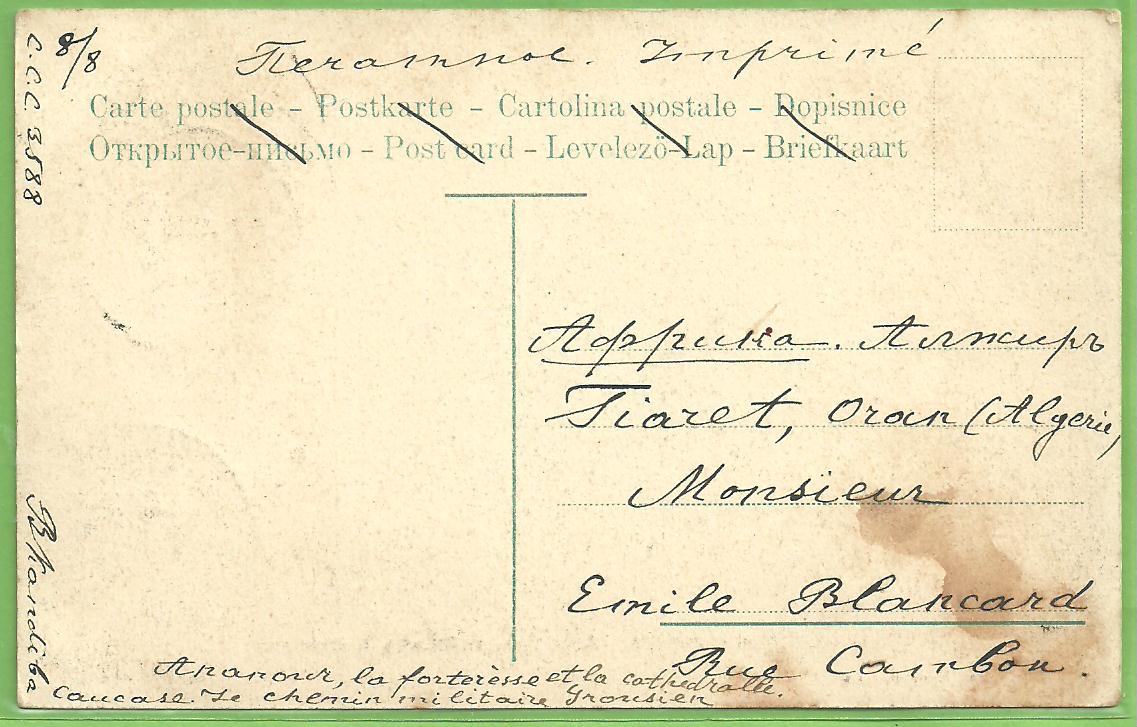 8/8
C.C.C 3588
Печатное. Imprimé
Carte postale – Postkarte – Cartolina postale – Dopisnice
Открытое-письмо – Post card – Levelező-Lap – Briefkaart
Африка. Алжиръ
Tiaret, Oran (Algerie)
Monsieur
Emile Blancard
Rue Cambon.
Ananour, la forterèsse et la cathedralle.
Caucase. Le chemin militaire Grousien